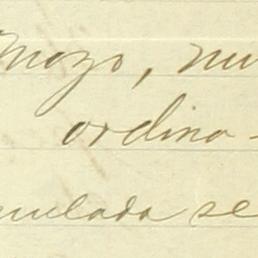 Mozo, mu
ordina-
mulada se